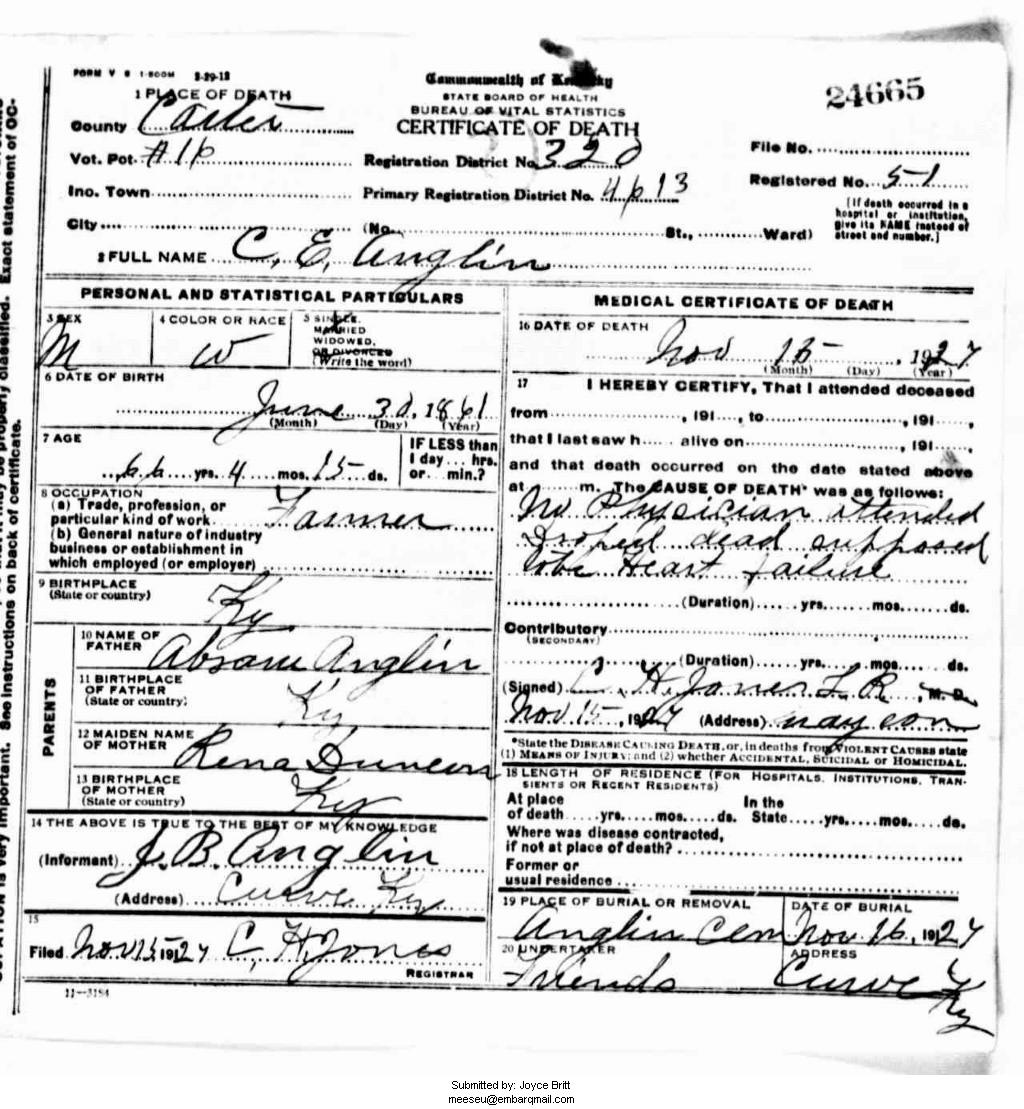 FORM V S 1-500M 2-29-12
Commonwealth of Kentucky
STATE BOARD OF HEALTH
BUREAU OF VITAL STATISTICS
CERTIFICATE OF DEATH
24665
1 PLACE OF DEATH
County Carter
Vot. Pot. #16
Registration District No. 320
File No.
Inc. Town
Primary Registration District No. 4613
Registered No. 51
City
(No. St., Ward)
[If death occurred in a
hospital or institution,
give its NAME instead of
street and number.]
2 FULL NAME C. E. Anglin
PERSONAL AND STATISTICAL PARTICULARS
3 SEX
M
4 COLOR OR RACE
W
5 SINGLE,
MARRIED
WIDOWED,
OR DIVORCED
(Write the word)
6 DATE OF BIRTH
June 30, 1861
(Month) (Day) (Year)
7 AGE
66 yrs. 4 mos. 15 ds.
IF LESS than
1 day... hrs.
or... min.?
8 OCCUPATION
(a) Trade, profession, or
particular kind of work Farmer
(b) General nature of industry
business or establishment in
which employed (or employer)
9 BIRTHPLACE
(State or country)
Ky
PARENTS
10 NAME OF
FATHER
Absom Anglin
11 BIRTHPLACE
OF FATHER
(State or country)
Ky
12 MAIDEN NAME
OF MOTHER
Rena Duncan
13 BIRTHPLACE
OF MOTHER
(State or country)
Ky
14 THE ABOVE IS TRUE TO THE BEST OF MY KNOWLEDGE
(Informant) J. B. Anglin
(Address) Curve Ky
15
Filed Nov 15 1927 C. H. Jones
REGISTRAR
11-3184
MEDICAL CERTIFICATE OF DEATH
16 DATE OF DEATH
Nov 15, 1927
(Month) (Day) (Year)
17 I HEREBY CERTIFY, That I attended deceased
from , 191 , to , 191 ,
that I last saw h alive on , 191 ,
and that death occurred on the date stated above
at m. The CAUSE OF DEATH* was as follows:
No Physician attended
Droped dead supposed
to be Heart failure
(Duration) yrs. mos. ds.
Contributory
(SECONDARY)
(Duration) yrs. mos. ds.
(Signed) C. H. Jones L R, M. D.
Nov 15, 1927 (Address)
*State the DISEASE CAUSING DEATH, or, in deaths from VIOLENT CAUSES state
(1) MEANS OF INJURY; and (2) whether ACCIDENTAL, SUICIDAL or HOMICIDAL.
18 LENGTH OF RESIDENCE (FOR HOSPITALS, INSTITUTIONS, TRAN-
SIENTS OR RECENT RESIDENTS)
At place In the
of death yrs. mos. ds. State yrs. mos. ds.
Where was disease contracted,
if not at place of death?
Former or
usual residence
19 PLACE OF BURIAL OR REMOVAL
Anglin Cem
DATE OF BURIAL
Nov 16, 1927
20 UNDERTAKER
Friends
ADDRESS
Curve Ky
See instructions on back of certificate.
Exact statement of OC-
Submitted by: Joyce Britt
meeseu@embarqmail.com